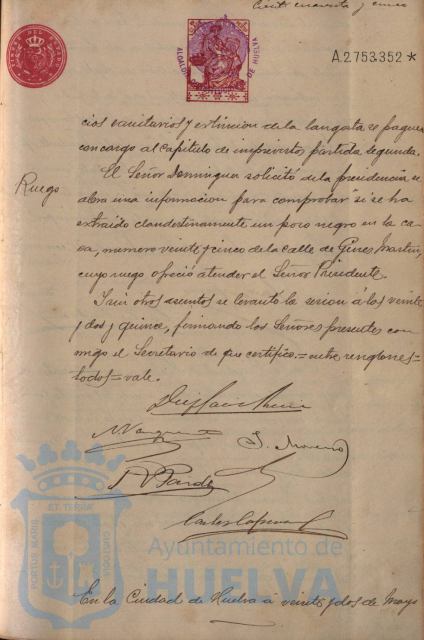 Ciento cuarenta y cinco
A.2.753.352 *
ALCALDIA DE HUELVA
cios sanitarios y extincion de la langosta se paguen
con cargo al capitulo de imprevistos partida segunda.
Ruego
El Señor Dominguez solicitó de la presidencia se
abra una informacion para comprobar si se ha
extraido clandestinamente un pozo negro en la ca-
sa, numero veinte y cinco de la calle de Gines Martin,
cuyo ruego ofreció atender el Señor Presidente.
Y sin otros asuntos se levantó la sesion á las veinte
y dos y quince, firmando los Señores presentes con-
migo el Secretario de que certifico.=entre renglones=
todos=vale.
J. Moreno
PORTUS MARIS ET TERRÆ CUSTODIA
Ayuntamiento de
HUELVA
En la Ciudad de Huelva á veinte y dos de Mayo